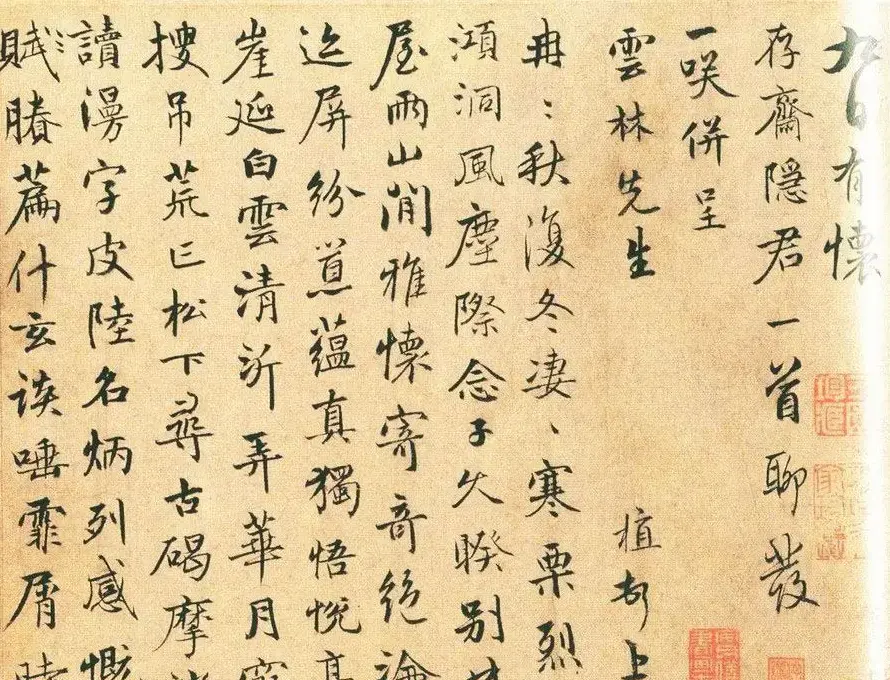 九日有懷
存齋隱君一首聊發
一咲併呈
雲林先生 植
冉〻秋復冬淒〻寒栗烈
澒洞風塵際念子久睽別
屋兩山間雅懷寄奇絕論
迄屏紛蕴真獨悟悅
崖延白雲清沂弄華月
搜吊荒亡松下尋古碣摩
讀漫字皮陸名炳列感慨
賦賸篇什玄談唾霏屑